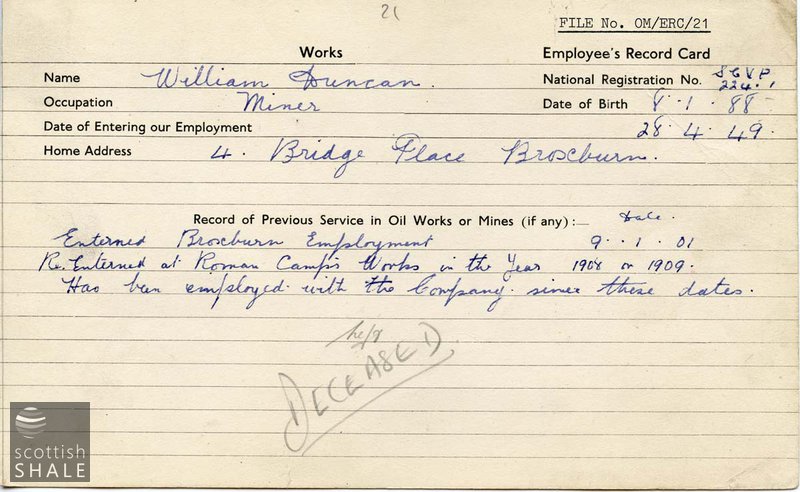 21
FILE No. OM/ERC/21
Works Employee's Record Card
Name William Duncan. National Registration No. SGVP 224.1
Occupation Miner Date of Birth 8 . 1 . 88
Date of Entering our Employment 28. 4. 49.
Home Address 4. Bridge Place Broxburn.
Record of Previous Service in Oil Works or Mines (if any):— Date.
Enterned Broxburn Employment 9 . 1 . 01
Re. Enterned at Roman Camps Works in the Year 1908 or 1909.
Has been employed with the Company since these dates.
DECEASED
scottish
SHALE